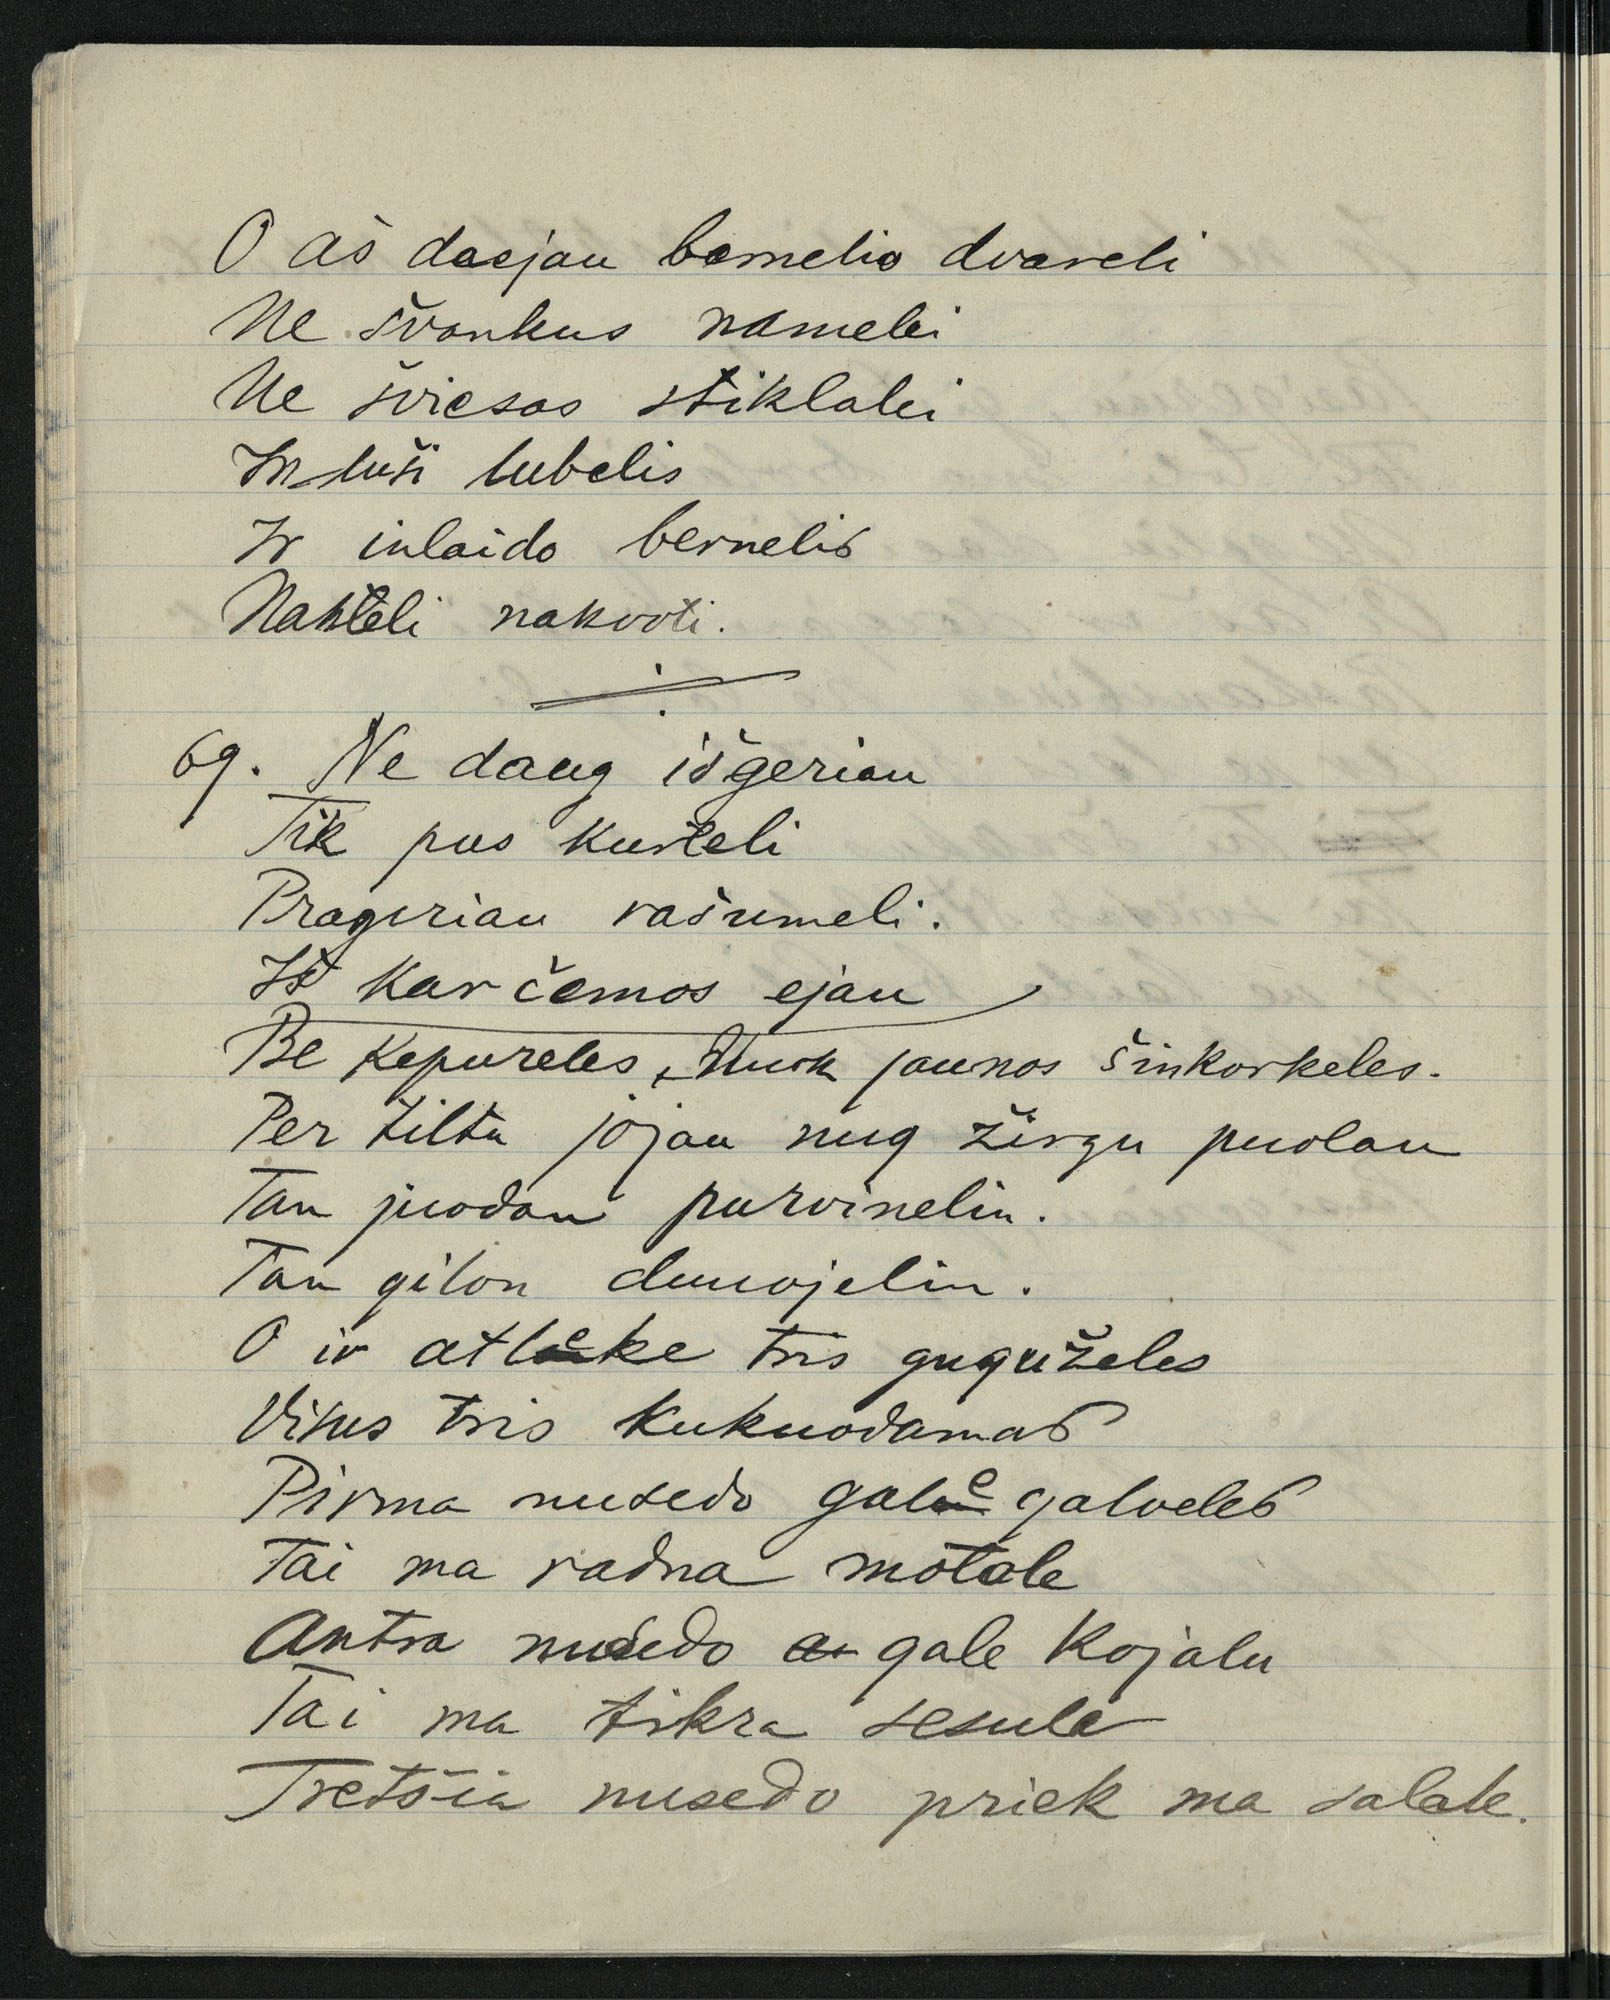 O aš daejau bernelio dvareli
Ne švankus namelei
Ne šviesos stiklalei
In luši lubelis
Ir inlaido bernelis
Nakteli nakvoti.
69. Ne daug išgeriau
Tik pus kvorteli
Prageriau rašumeli.
Iš karčemos ejau
Be kepureles, nuok jaunos šinkorkeles.
Per tilta jojau nug žirgu puolau
Tan juodan purvinelin.
Tan gilon dunojelin.
O ir atleke tris guguželes
Visus tris kukuodamas
Pirma nusedo gale galveles
Tai ma radna motale
Antra nusedo gale kojalu
Tai ma tikra sesule
Tretšia nusedo priek ma salale.